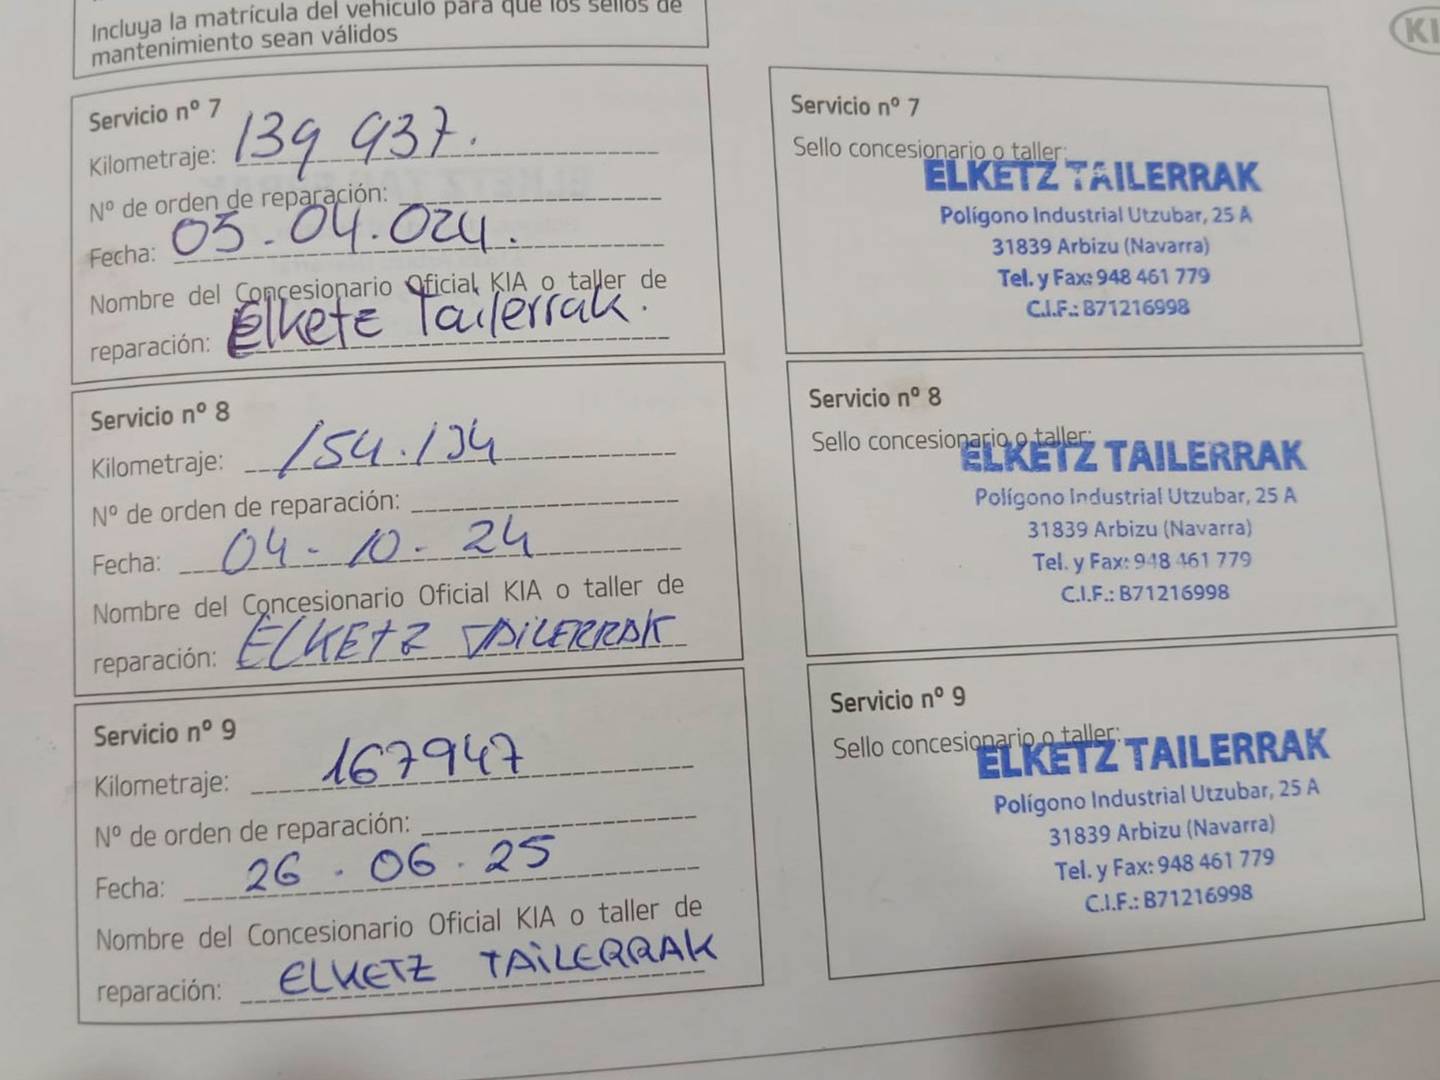 Incluya la matrícula del vehículo para que los sellos de
mantenimiento sean válidos
KI
Servicio nº 7
Kilometraje: 139 937.
Nº de orden de reparación:
Fecha: 05.04.024.
Nombre del Concesionario Oficial KIA o taller de
reparación: Elketz Tailerrak.
Servicio nº 7
Sello concesionario o taller:
ELKETZ TAILERRAK
Polígono Industrial Utzubar, 25 A
31839 Arbizu (Navarra)
Tel. y Fax: 948 461 779
C.I.F.: B71216998
Servicio nº 8
Kilometraje: 154.134
Nº de orden de reparación:
Fecha: 04-10-24
Nombre del Concesionario Oficial KIA o taller de
reparación: ELKETZ TAILERRAK
Servicio nº 8
Sello concesionario o taller:
ELKETZ TAILERRAK
Polígono Industrial Utzubar, 25 A
31839 Arbizu (Navarra)
Tel. y Fax: 948 461 779
C.I.F.: B71216998
Servicio nº 9
Kilometraje: 167947
Nº de orden de reparación:
Fecha: 26.06.25
Nombre del Concesionario Oficial KIA o taller de
reparación: ELKETZ TAILERRAK
Servicio nº 9
Sello concesionario o taller:
ELKETZ TAILERRAK
Polígono Industrial Utzubar, 25 A
31839 Arbizu (Navarra)
Tel. y Fax: 948 461 779
C.I.F.: B71216998